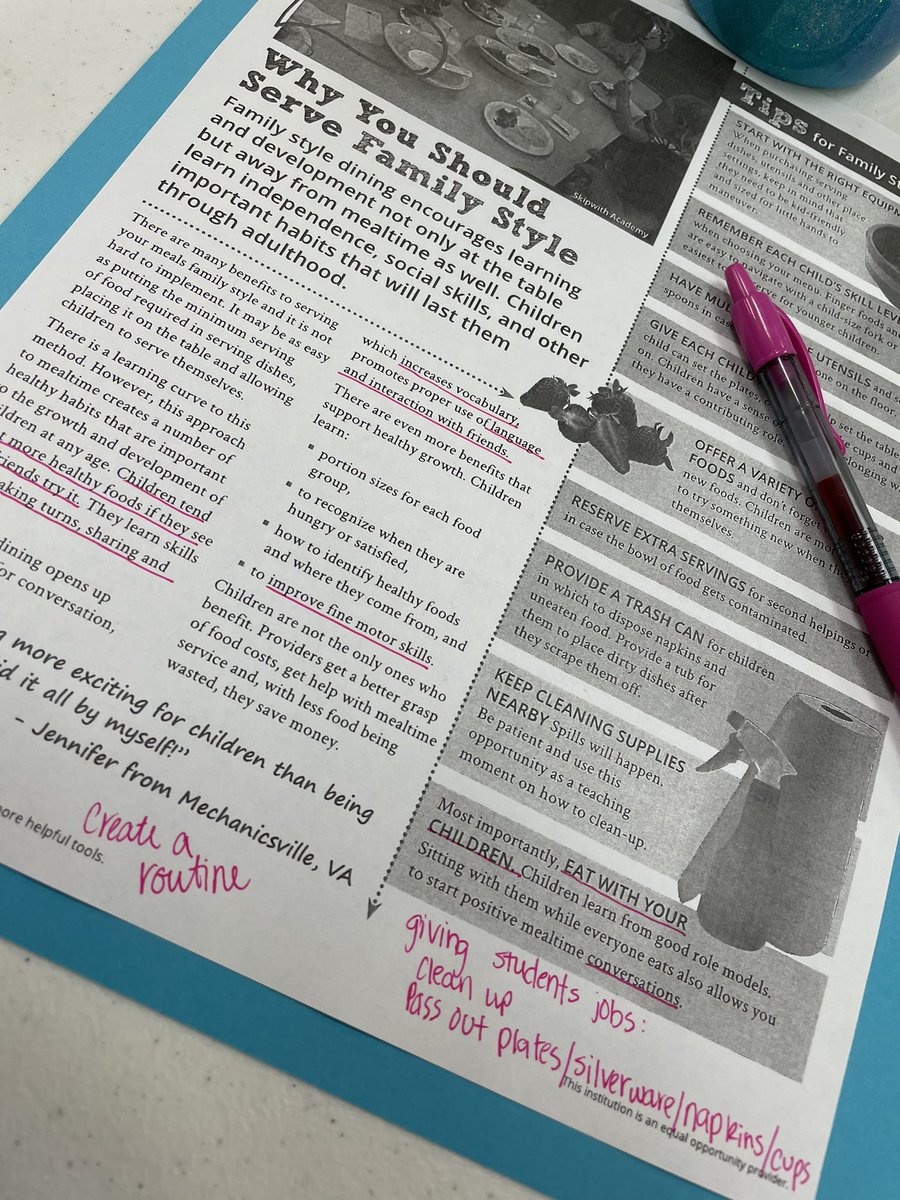 Skipwith Academy
Why You Should
Serve Family Style
Family style dining encourages learning
and development not only at the table
but away from mealtime as well. Children
learn independence, social skills, and other
important habits that will last them
through adulthood.
There are many benefits to serving
your meals family style and it is not
hard to implement. It may be as easy
as putting the minimum serving
of food required in serving dishes,
placing it on the table and allowing
children to serve themselves.
There is a learning curve to this
method. However, this approach
to mealtime creates a number of
healthy habits that are important
to the growth and development of
children at any age. Children tend
more healthy foods if they see
friends try it. They learn skills
taking turns, sharing and
dining opens up
for conversation,
which increases vocabulary,
promotes proper use of language
and interaction with friends.
There are even more benefits that
support healthy growth. Children
learn:
▪ portion sizes for each food
group,
▪ to recognize when they are
hungry or satisfied,
▪ how to identify healthy foods
and where they come from, and
▪ to improve fine motor skills.
Children are not the only ones who
benefit. Providers get a better grasp
of food costs, get help with mealtime
service and, with less food being
wasted, they save money.
more exciting for children than being
it all by myself!”
- Jennifer from Mechanicsville, VA
more helpful tools.
Create a
routine
Tips for Family
START WITH THE RIGHT
When purchasing serving
dishes, utensils and other place
settings, keep in mind that
they need to be kid-friendly
and sized for little hands to
maneuver.
REMEMBER EACH CHILD'S SKILL
when choosing your menu. Finger foods and
are easy to navigate with a child-size fork or
easiest serve for younger children.
HAVE UTENSILS and
spoons in case one on the floor.
GIVE EACH
Child can set the plates, set the table
on. Children have a sense cups and
they have a contributing role belonging
OFFER A VARIETY
FOODS and don't forget
new foods. Children are
to try something new when
themselves.
RESERVE EXTRA SERVINGS for second helpings or
in case the bowl of food gets contaminated.
PROVIDE A TRASH CAN for children
in which to dispose napkins and
uneaten food. Provide a tub for
them to place dirty dishes after
they scrape them off.
KEEP CLEANING SUPPLIES
NEARBY Spills will happen.
Be patient and use this
opportunity as a teaching
moment on how to clean-up.
Most importantly, EAT WITH YOUR
CHILDREN. Children learn from good role models.
Sitting with them while everyone eats also allows you
to start positive mealtime conversations.
giving students jobs:
Clean up
Pass out plates/silverware/napkins/cups
This institution is an equal opportunity provider.